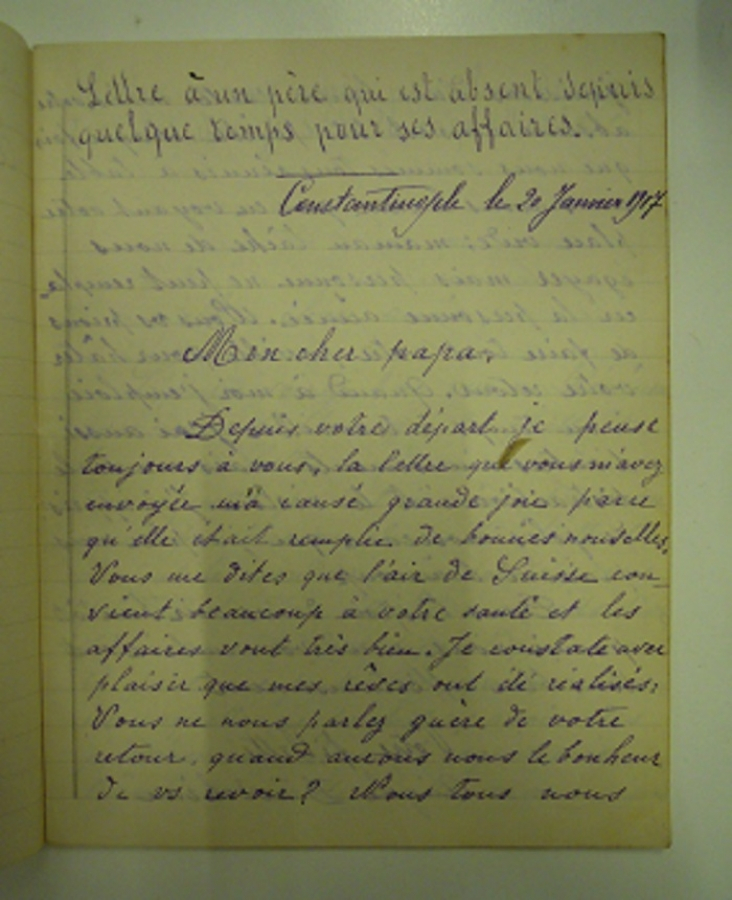 Lettre à un père qui est absent depuis
quelque temps pour ses affaires.
Constantinople le 20 Janvier 1917
Mon cher papa,
Depuis votre départ je pense
toujours à vous, la lettre que vous m'avez
envoyée m'a causé grande joie parce
qu'elle était remplie de bonnes nouvelles,
Vous me dites que l'air de Suisse con-
vient beaucoup à votre santé et les
affaires vont très bien. Je constate avec
plaisir que mes rêves ont été réalisés;
Vous ne nous parlez guère de votre
retour, quand aurons nous le bonheur
de vs revoir? Nous tous nous